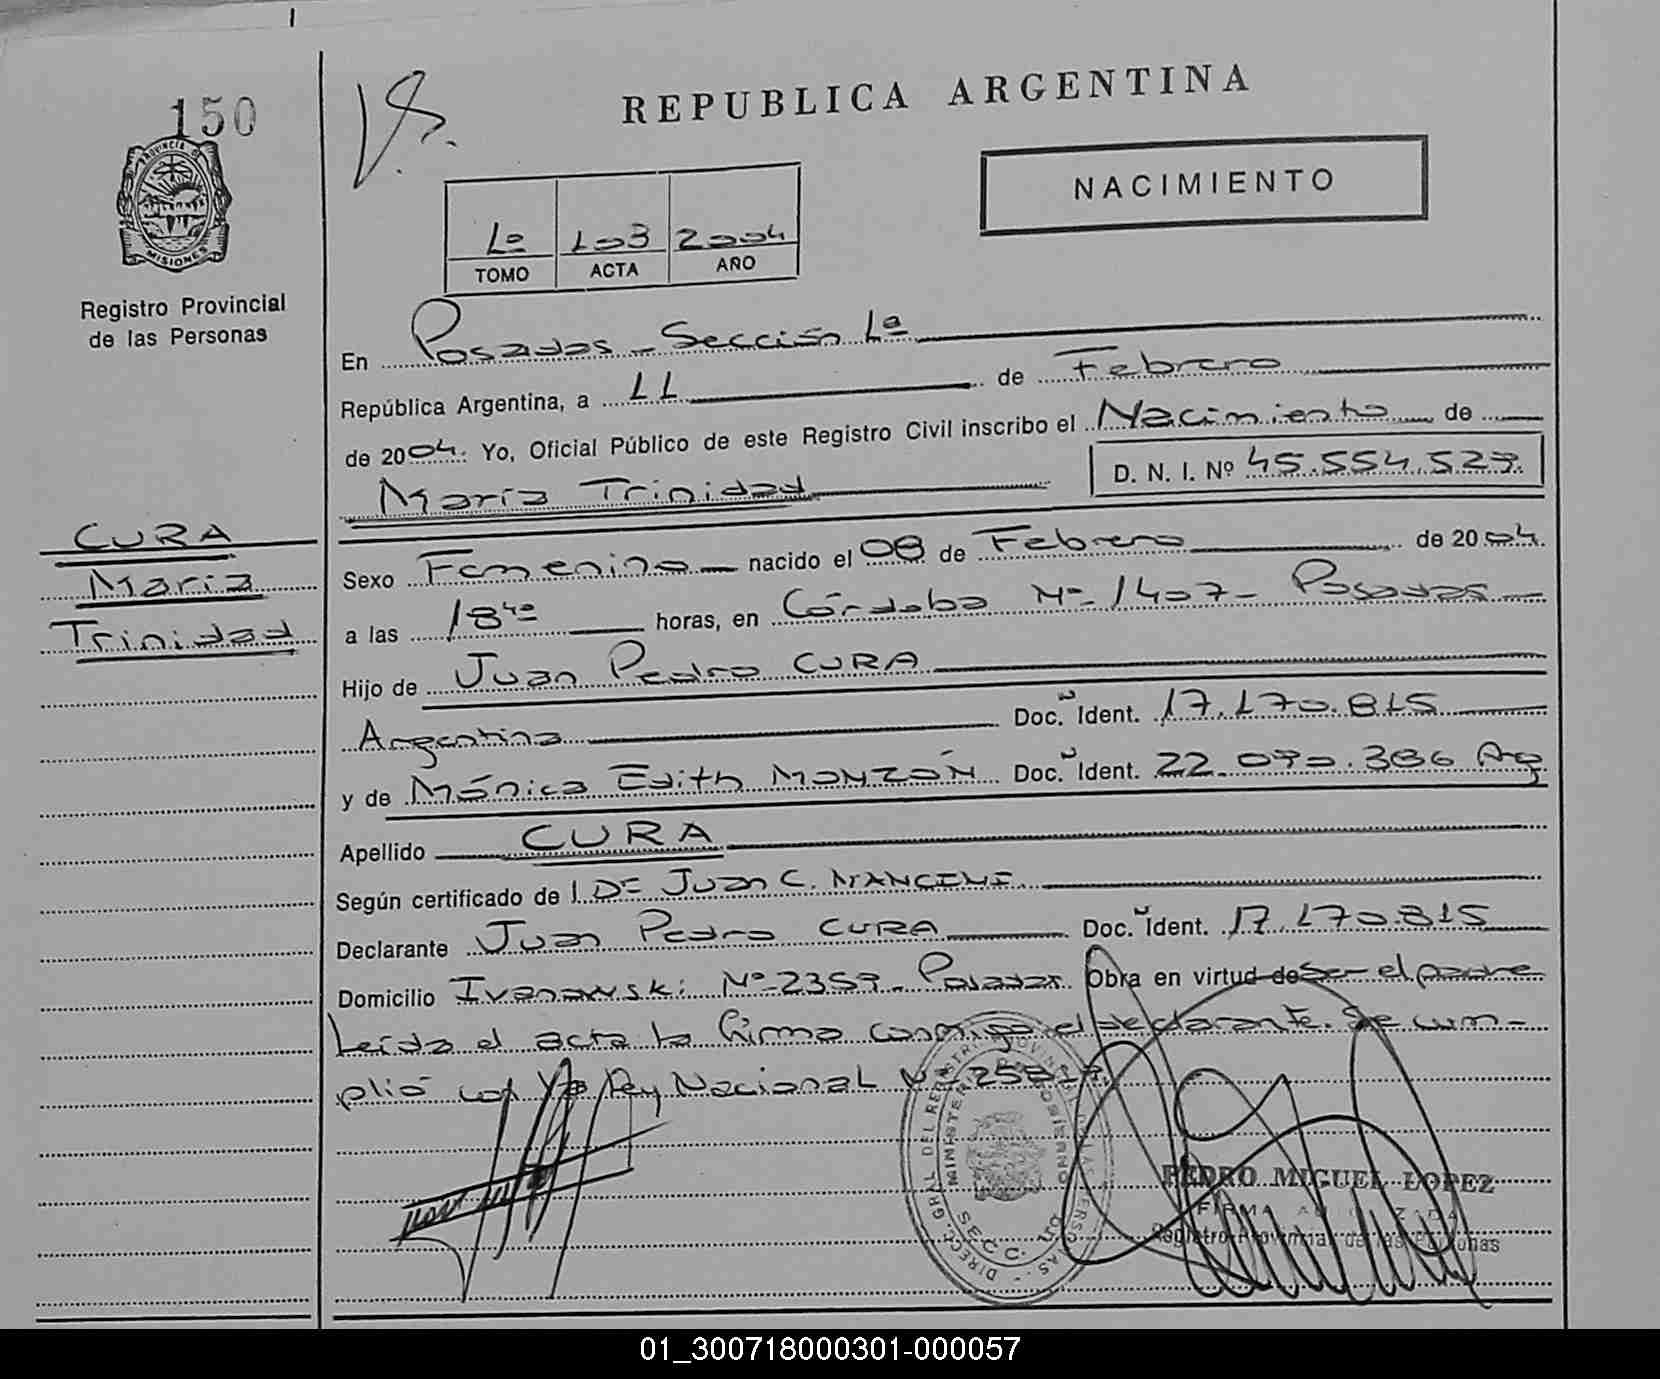 150
PROVINCIA DE
MISIONES
Registro Provincial
de las Personas
CURA
María
Trinidad
REPUBLICA ARGENTINA
NACIMIENTO
1º 103 2004
TOMO ACTA AÑO
En Posadas - Sección 1ª
República Argentina, a 11 de Febrero
de 2004. Yo, Oficial Público de este Registro Civil inscribo el Nacimiento de
María Trinidad D. N. I. Nº 45.554.527.
Sexo Femenino nacido el 08 de Febrero de 2004.
a las 18⁴⁰ horas, en Córdoba Nº 1407 - Posadas
Hijo de Juan Pedro CURA
Argentina Doc. Ident. 17.170.815
y de Mónica Edith MONZÓN Doc. Ident. 22.070.386 Arg
Apellido CURA
Según certificado de Dr Juan C. MANCINI
Declarante Juan Pedro CURA Doc. Ident. 17.170.815
Domicilio Ivanowski Nº 2359 - Posadas Obra en virtud de Ser el padre
Leída el acta la firma conmigo el declarante. Se cum-
plió con Ley Nacional Nº
DIRECC. GRAL DEL REGISTRO PROVINCIAL DE LAS PERSONAS
MINISTERIO DE GOBIERNO
SECC. 1ª
PEDRO MIGUEL LOPEZ
FIRMA AUTORIZADA
Registro Provincial de las Personas
01_300718000301-000057